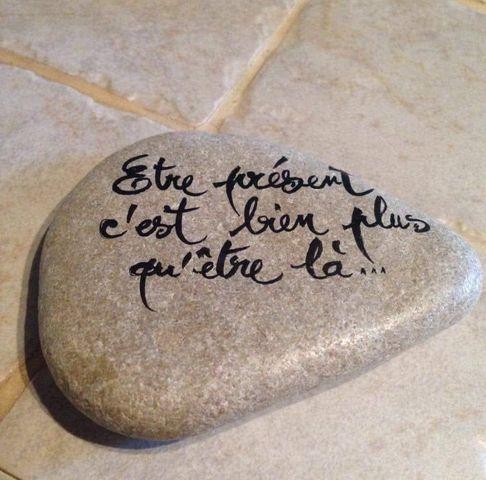 Etre présent
c'est bien plus
qu'être là...